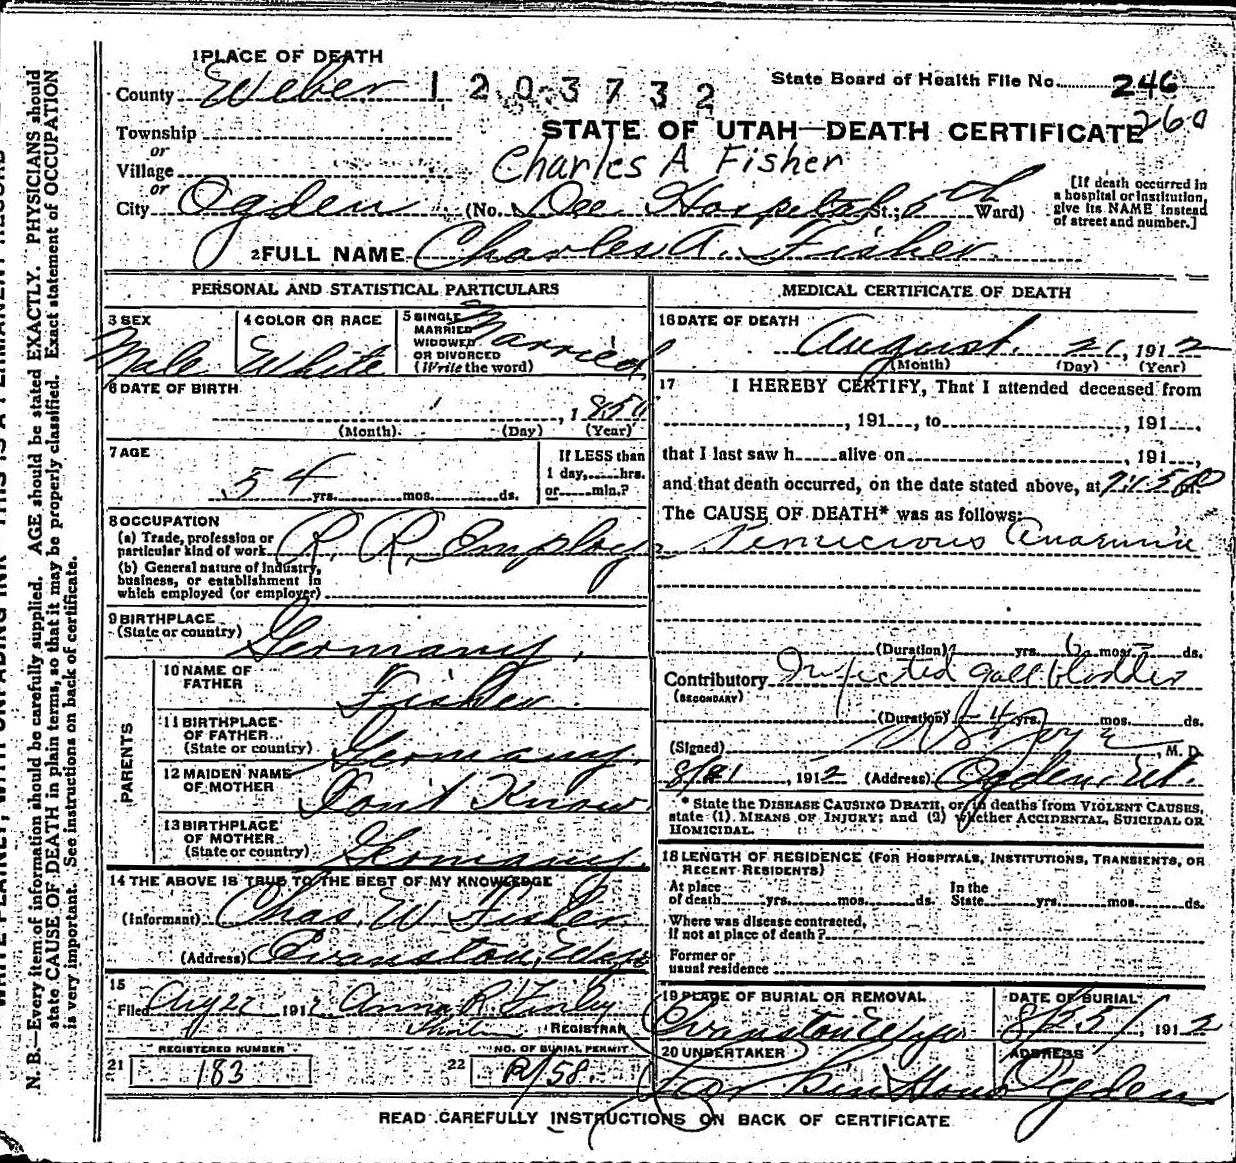 1 PLACE OF DEATH
County Weber 1203732
State Board of Health File No. 246
260
Township
or
Village
or
STATE OF UTAH—DEATH CERTIFICATE
Charles A Fisher
City Ogden (No. Dee Hospital St.; 5th Ward)
[If death occurred in
a hospital or institution,
give its NAME instead
of street and number.]
2 FULL NAME Charles A. Fisher
PERSONAL AND STATISTICAL PARTICULARS
3 SEX
Male
4 COLOR OR RACE
White
5 SINGLE
MARRIED
WIDOWED
OR DIVORCED
(Write the word)
Married
6 DATE OF BIRTH
, 185
(Month) (Day) (Year)
7 AGE
54 yrs. mos. ds.
If LESS than
1 day, hrs.
or min.?
8 OCCUPATION
(a) Trade, profession or
particular kind of work R. R. Employ
(b) General nature of Industry,
business, or establishment in
which employed (or employer)
9 BIRTHPLACE
(State or country) Germany
PARENTS
10 NAME OF
FATHER Fisher
11 BIRTHPLACE
OF FATHER
(State or country) Germany
12 MAIDEN NAME
OF MOTHER Don't Know
13 BIRTHPLACE
OF MOTHER
(State or country) Germany
14 THE ABOVE IS TRUE TO THE BEST OF MY KNOWLEDGE
(Informant) Chas. W Fisher
(Address) Evanston, Wyo
15
Filed Aug 22 1912 Anna R.
REGISTRAR
REGISTERED NUMBER
21 183
NO. OF BURIAL PERMIT
22 R/58.
MEDICAL CERTIFICATE OF DEATH
16 DATE OF DEATH
August 21, 1912
(Month) (Day) (Year)
17 I HEREBY CERTIFY, That I attended deceased from
, 191 , to , 191 ,
that I last saw h alive on , 191 ,
and that death occurred, on the date stated above, at m.
The CAUSE OF DEATH* was as follows:
Pernicious Anaemia
(Duration) yrs. 6 mos. ds.
Contributory Infected gall bladder
(SECONDARY)
(Duration) yrs. mos. ds.
(Signed) , M. D.
8/21, 1912 (Address) Ogden, Ut.
* State the DISEASE CAUSING DEATH, or, in deaths from VIOLENT CAUSES,
state (1) MEANS OF INJURY; and (2) whether ACCIDENTAL, SUICIDAL OR
HOMICIDAL.
18 LENGTH OF RESIDENCE (FOR HOSPITALS, INSTITUTIONS, TRANSIENTS, OR
RECENT RESIDENTS)
At place
of death yrs. mos. ds.
In the
State yrs. mos. ds.
Where was disease contracted,
If not at place of death?
Former or
usual residence
19 PLACE OF BURIAL OR REMOVAL
Evanston Wyo
DATE OF BURIAL
8/25/, 1912
20 UNDERTAKER
Larkin
ADDRESS
Ogden
READ CAREFULLY INSTRUCTIONS ON BACK OF CERTIFICATE
WRITE PLAINLY, WITH UNFADING INK—THIS IS A PERMANENT RECORD
N. B.—Every item of information should be carefully supplied. AGE should be stated EXACTLY. PHYSICIANS should
state CAUSE OF DEATH in plain terms, so that it may be properly classified. Exact statement of OCCUPATION
is very important. See instructions on back of certificate.